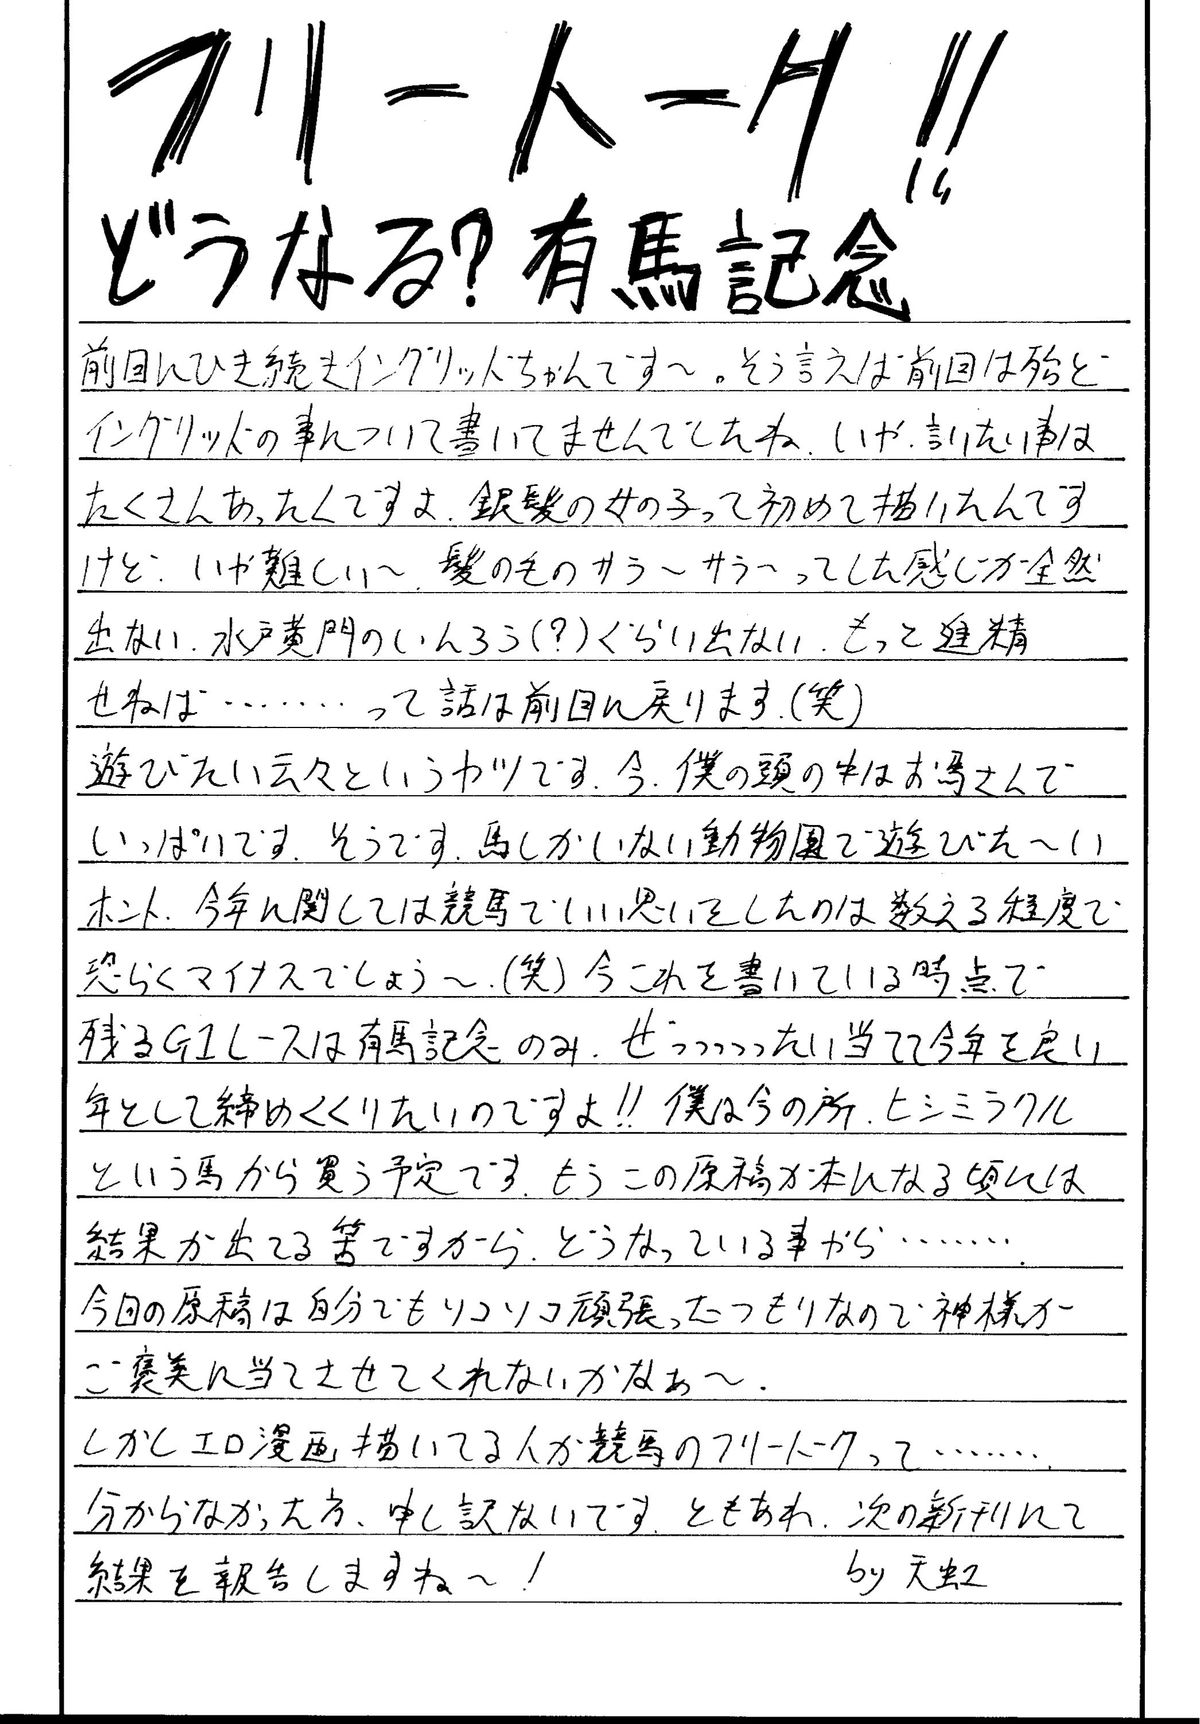 フリートーク!!
どうなる?有馬記念
前回にひき続きイングリッドちゃんです〜。そう言えば前回は殆ど
イングリッドの事について書いてませんでしたね、いや、言いたい事は
たくさんあったんですよ、銀髪の女の子って初めて描いたんです
けど、いや難しい〜、髪の毛のサラ〜サラ〜ってした感じが全然
出ない、水戸黄門のいんろう(?)ぐらい出ない、もっと進精
せねば………って話は前回に戻ります、(笑)
遊びたい云々というヤツです、今、僕の頭の中はお馬さんで
いっぱいです、そうです、馬しかいない動物園で遊びた〜い
ホント、今年に関しては競馬でいい思いをしたのは数える程度で
恐らくマイナスでしょう〜、(笑)今これを書いている時点で
残るG1レースは有馬記念のみ、ぜっっっっったい当てて今年を良い
年として締めくくりたいのですよ!!僕は今の所、ヒシミラクル
という馬から買う予定です、もうこの原稿が本になる頃には
結果が出てる筈ですから、どうなっている事から………、
今回の原稿は自分でもソコソコ頑張ったつもりなので神様が
ご褒美に当てさせてくれないかなぁ〜、
しかしエロ漫画描いてる人が競馬のフリートークって………、
分からなかった方、申し訳ないです、ともあれ、次の新刊にて
結果を報告しますね〜!
by 天虹